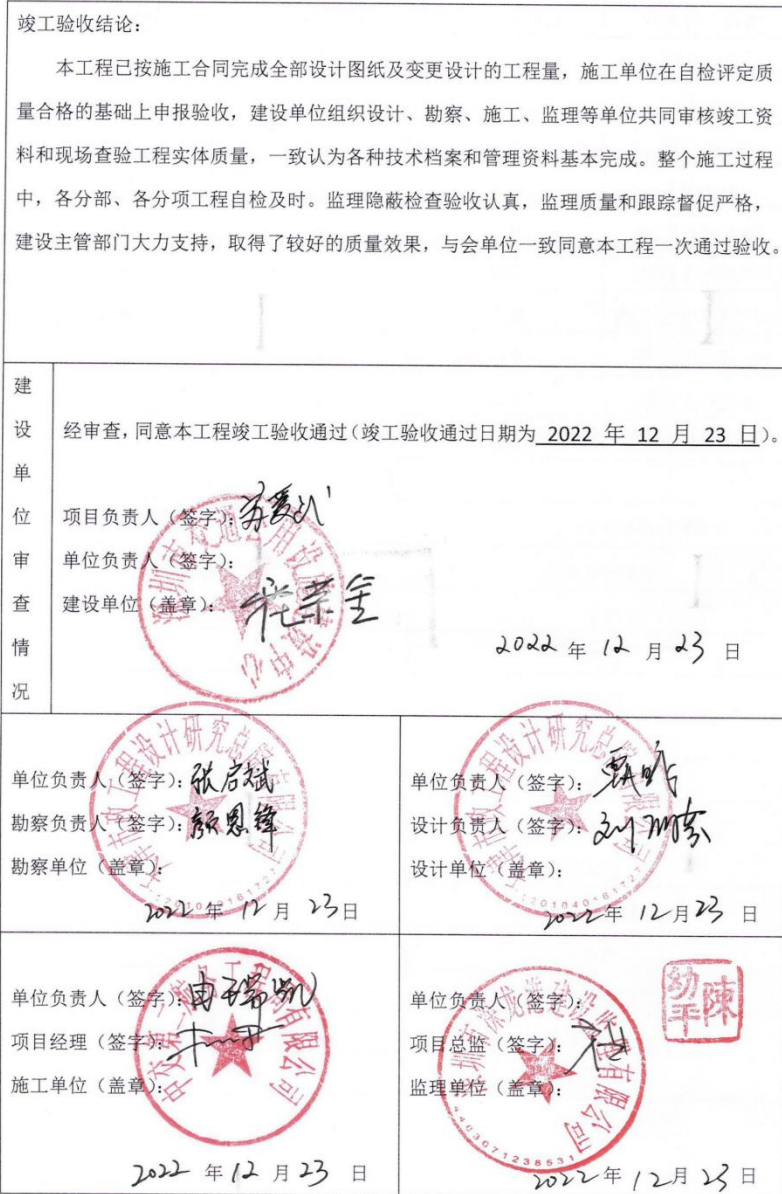 竣工验收结论：
本工程已按施工合同完成全部设计图纸及变更设计的工程量，施工单位在自检评定质
量合格的基础上申报验收，建设单位组织设计、勘察、施工、监理等单位共同审核竣工资
料和现场查验工程实体质量，一致认为各种技术档案和管理资料基本完成。整个施工过程
中，各分部、各分项工程自检及时。监理隐蔽检查验收认真，监理质量和跟踪督促严格，
建设主管部门大力支持，取得了较好的质量效果，与会单位一致同意本工程一次通过验收。
建设单位审查情况
经审查，同意本工程竣工验收通过（竣工验收通过日期为 2022 年 12 月 23 日）。
项目负责人（签字）：
单位负责人（签字）：
建设单位（盖章）：
深圳市交通公用设施建设中心
2022 年 12 月 23 日
单位负责人（签字）：张启斌
勘察负责人（签字）：颜恩锋
勘察单位（盖章）：
天津市政工程设计研究总院有限公司
2022 年 12 月 23 日
单位负责人（签字）：
设计负责人（签字）：
设计单位（盖章）：
天津市政工程设计研究总院有限公司
2022 年 12 月 23 日
单位负责人（签字）：由瑞凯
项目经理（签字）：
施工单位（盖章）：
2022 年 12 月 23 日
单位负责人（签字）：
陳幼平
项目总监（签字）：
监理单位（盖章）：
4403071238531
2022 年 12 月 23 日